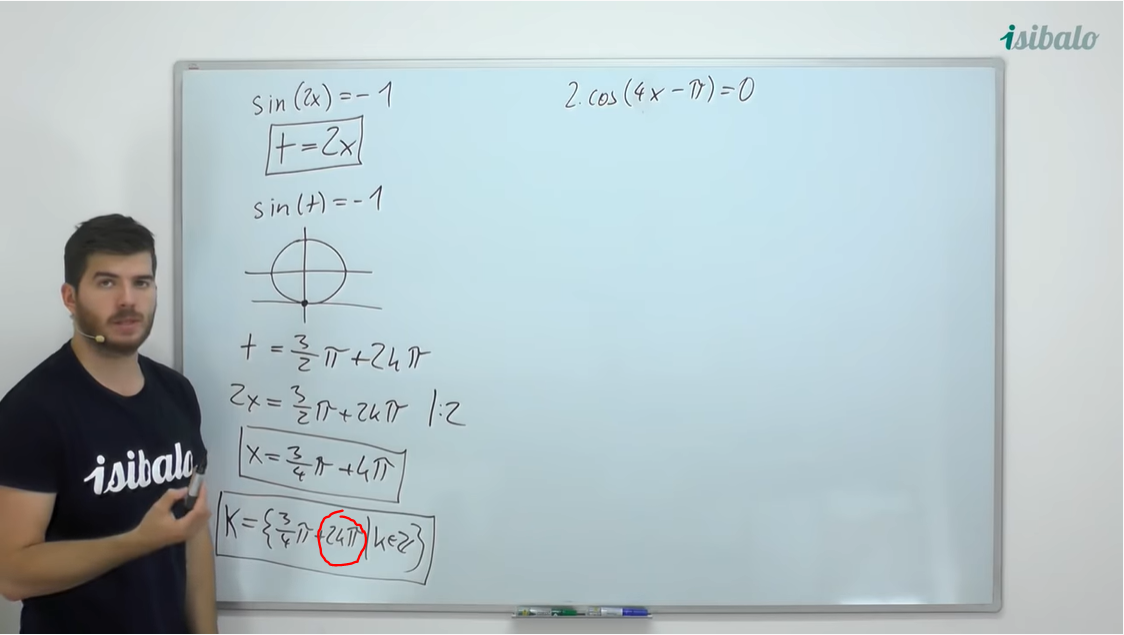 isibalo
sin(2x)=-1
t=2x
sin(t)=-1
t=3/2π+2kπ
2x=3/2π+2kπ |:2
x=3/4π+kπ
K={3/4π+2kπ|k∈ℤ}
2.cos(4x-π)=0
isibalo